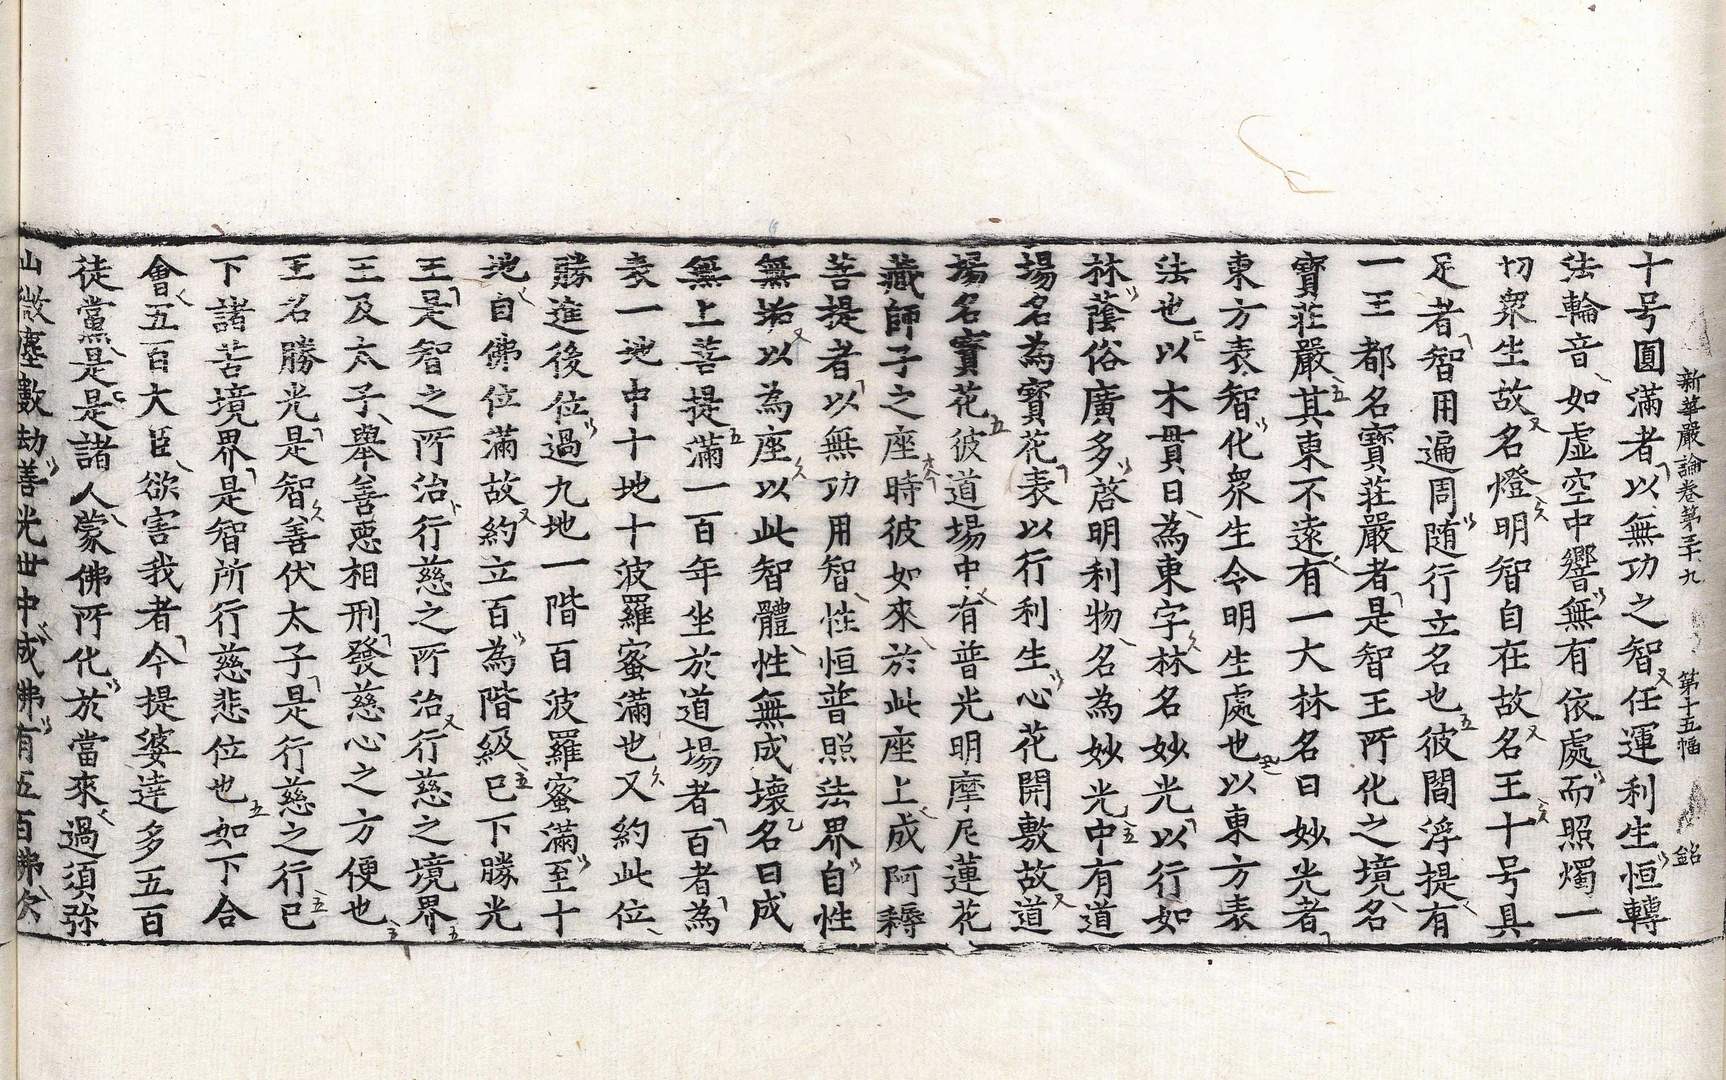 新華嚴論卷第三十九 第十五幅 銘
十号圓滿者以無功之智任運利生恒轉
法輪音如虛空中響無有依處而照燭一
切眾生故名燈明智自在故名王十号具
足者智用遍周随行立名也彼閻浮提有
一王都名寶莊嚴者是智王所化之境名
寶莊嚴其東不遠有一大林名曰妙光者
東方表智化眾生令明生處也以東方表
法也以木貫日為東字林名妙光以行如
林蔭俗廣多啓明利物名為妙光中有道
場名為寶花表以行利生心花開敷故道
場名寶花彼道場中有普光明摩尼蓮花
藏師子之座時彼如來於此座上成阿耨
菩提者以無功用智性恒普照法界自性
無垢以為座以此智體性無成壞名曰成
無上菩提滿一百年坐於道場者百者為
表一地中十地十波羅蜜滿也又約此位
勝進後位過九地一階百波羅蜜滿至十
地自佛位滿故約立百為階級已下勝光
王是智之所治行慈之所治行慈之境界
王及太子舉善惡相刑發慈心之方便也
王名勝光是智善伏太子是行慈之行已
下諸苦境界是智所行慈悲位也如下合
會五百大臣欲害我者今提婆達多五百
徒黨是是諸人蒙佛所化於當來過須弥
山微塵數劫善光世中成佛有五百佛次